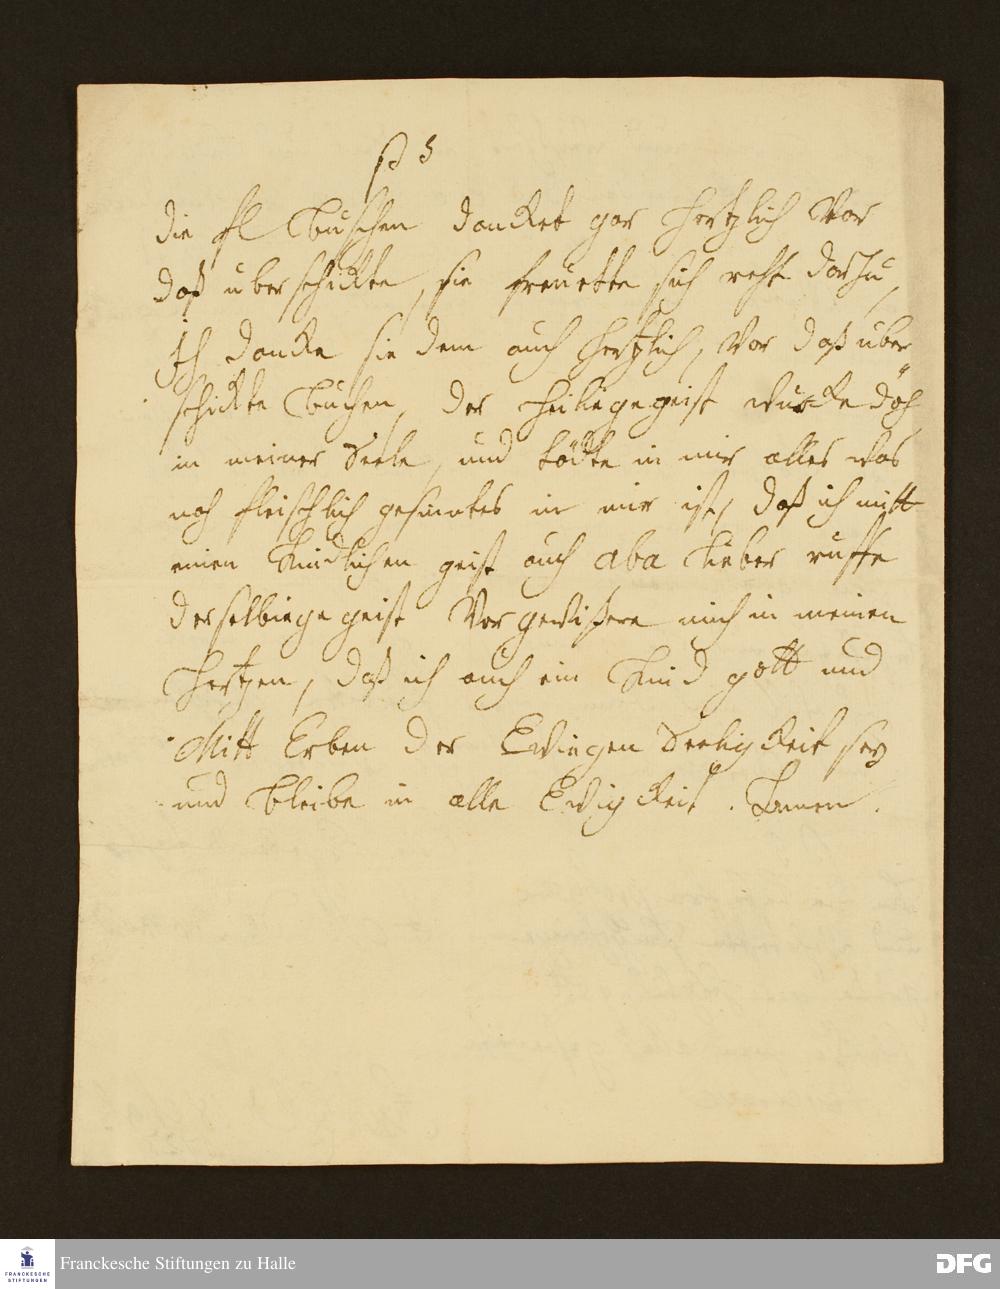 P S
die fl Buschen dancket gar hertzlich Vor
daß uberschickte, sie freuette sich recht darzu,
Ich dancke sie dem auch hertzlich, Vor daß uber
schickte Buchen, der heiliegegeist wurcke döch
in meiner Seele, und tödte in mir alles was
noch fleischlich gesinntes in mir ist, daß ich mitt
einen Kindlichen geist auch aba Lieber ruffe
derselbiege geist Vorgewißere mich in meinen
Hertzen, daß ich auch ein Kind gott und
Mitt Erben der Ewiegen Seeligkeit sey
und bleibe in alle Ewigkeit. Amen.
FRANCKESCHE
STIFTUNGEN
Franckesche Stiftungen zu Halle
DFG